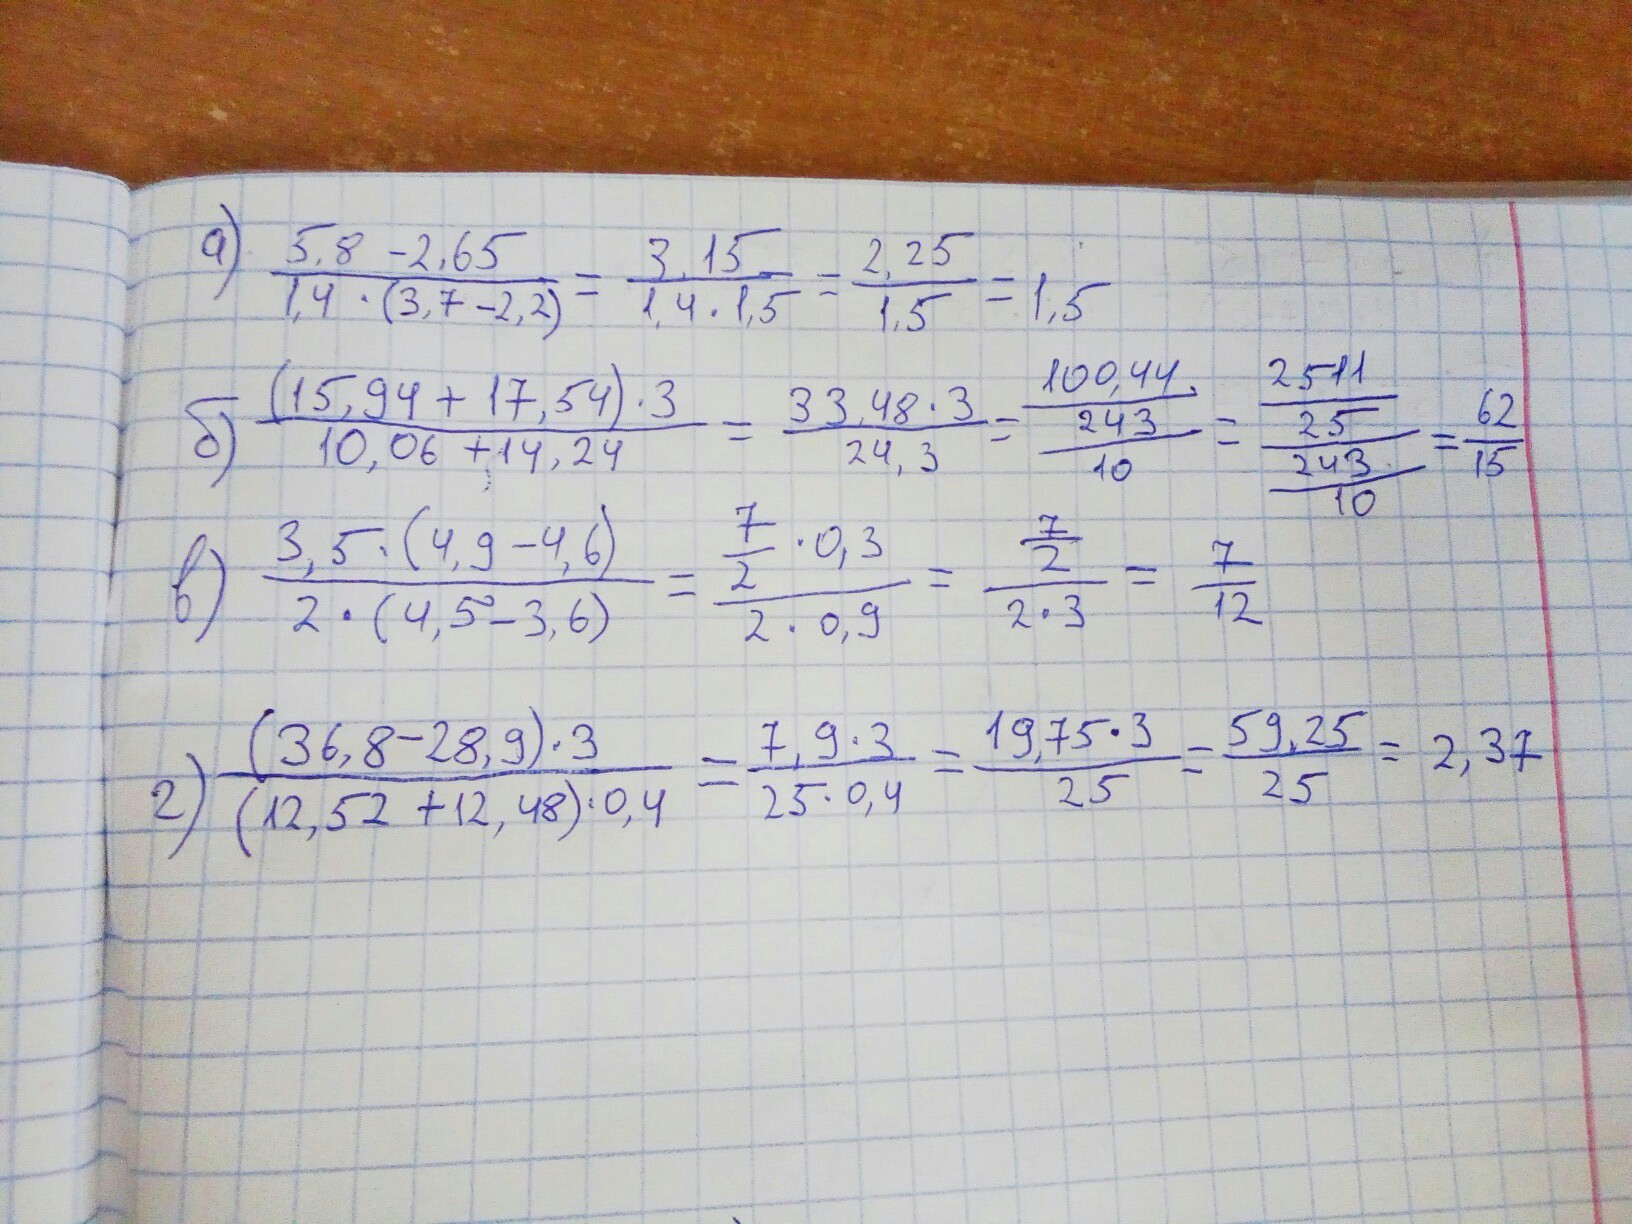 а) (5,8 - 2,65)/(1,4 · (3,7 - 2,2)) = 3,15/(1,4 · 1,5) = 2,25/1,5 = 1,5
б) ((15,94 + 17,54) · 3)/(10,06 + 14,24) = (33,48 · 3)/24,3 = 100,44/(243/10) = (2511/25)/(243/10) = 62/15
в) (3,5 · (4,9 - 4,6))/(2 · (4,5 - 3,6)) = (7/2 · 0,3)/(2 · 0,9) = (7/2)/(2 · 3) = 7/12
г) ((36,8 - 28,9) · 3)/((12,52 + 12,48) · 0,4) = (7,9 · 3)/(25 · 0,4) = (19,75 · 3)/25 = 59,25/25 = 2,37